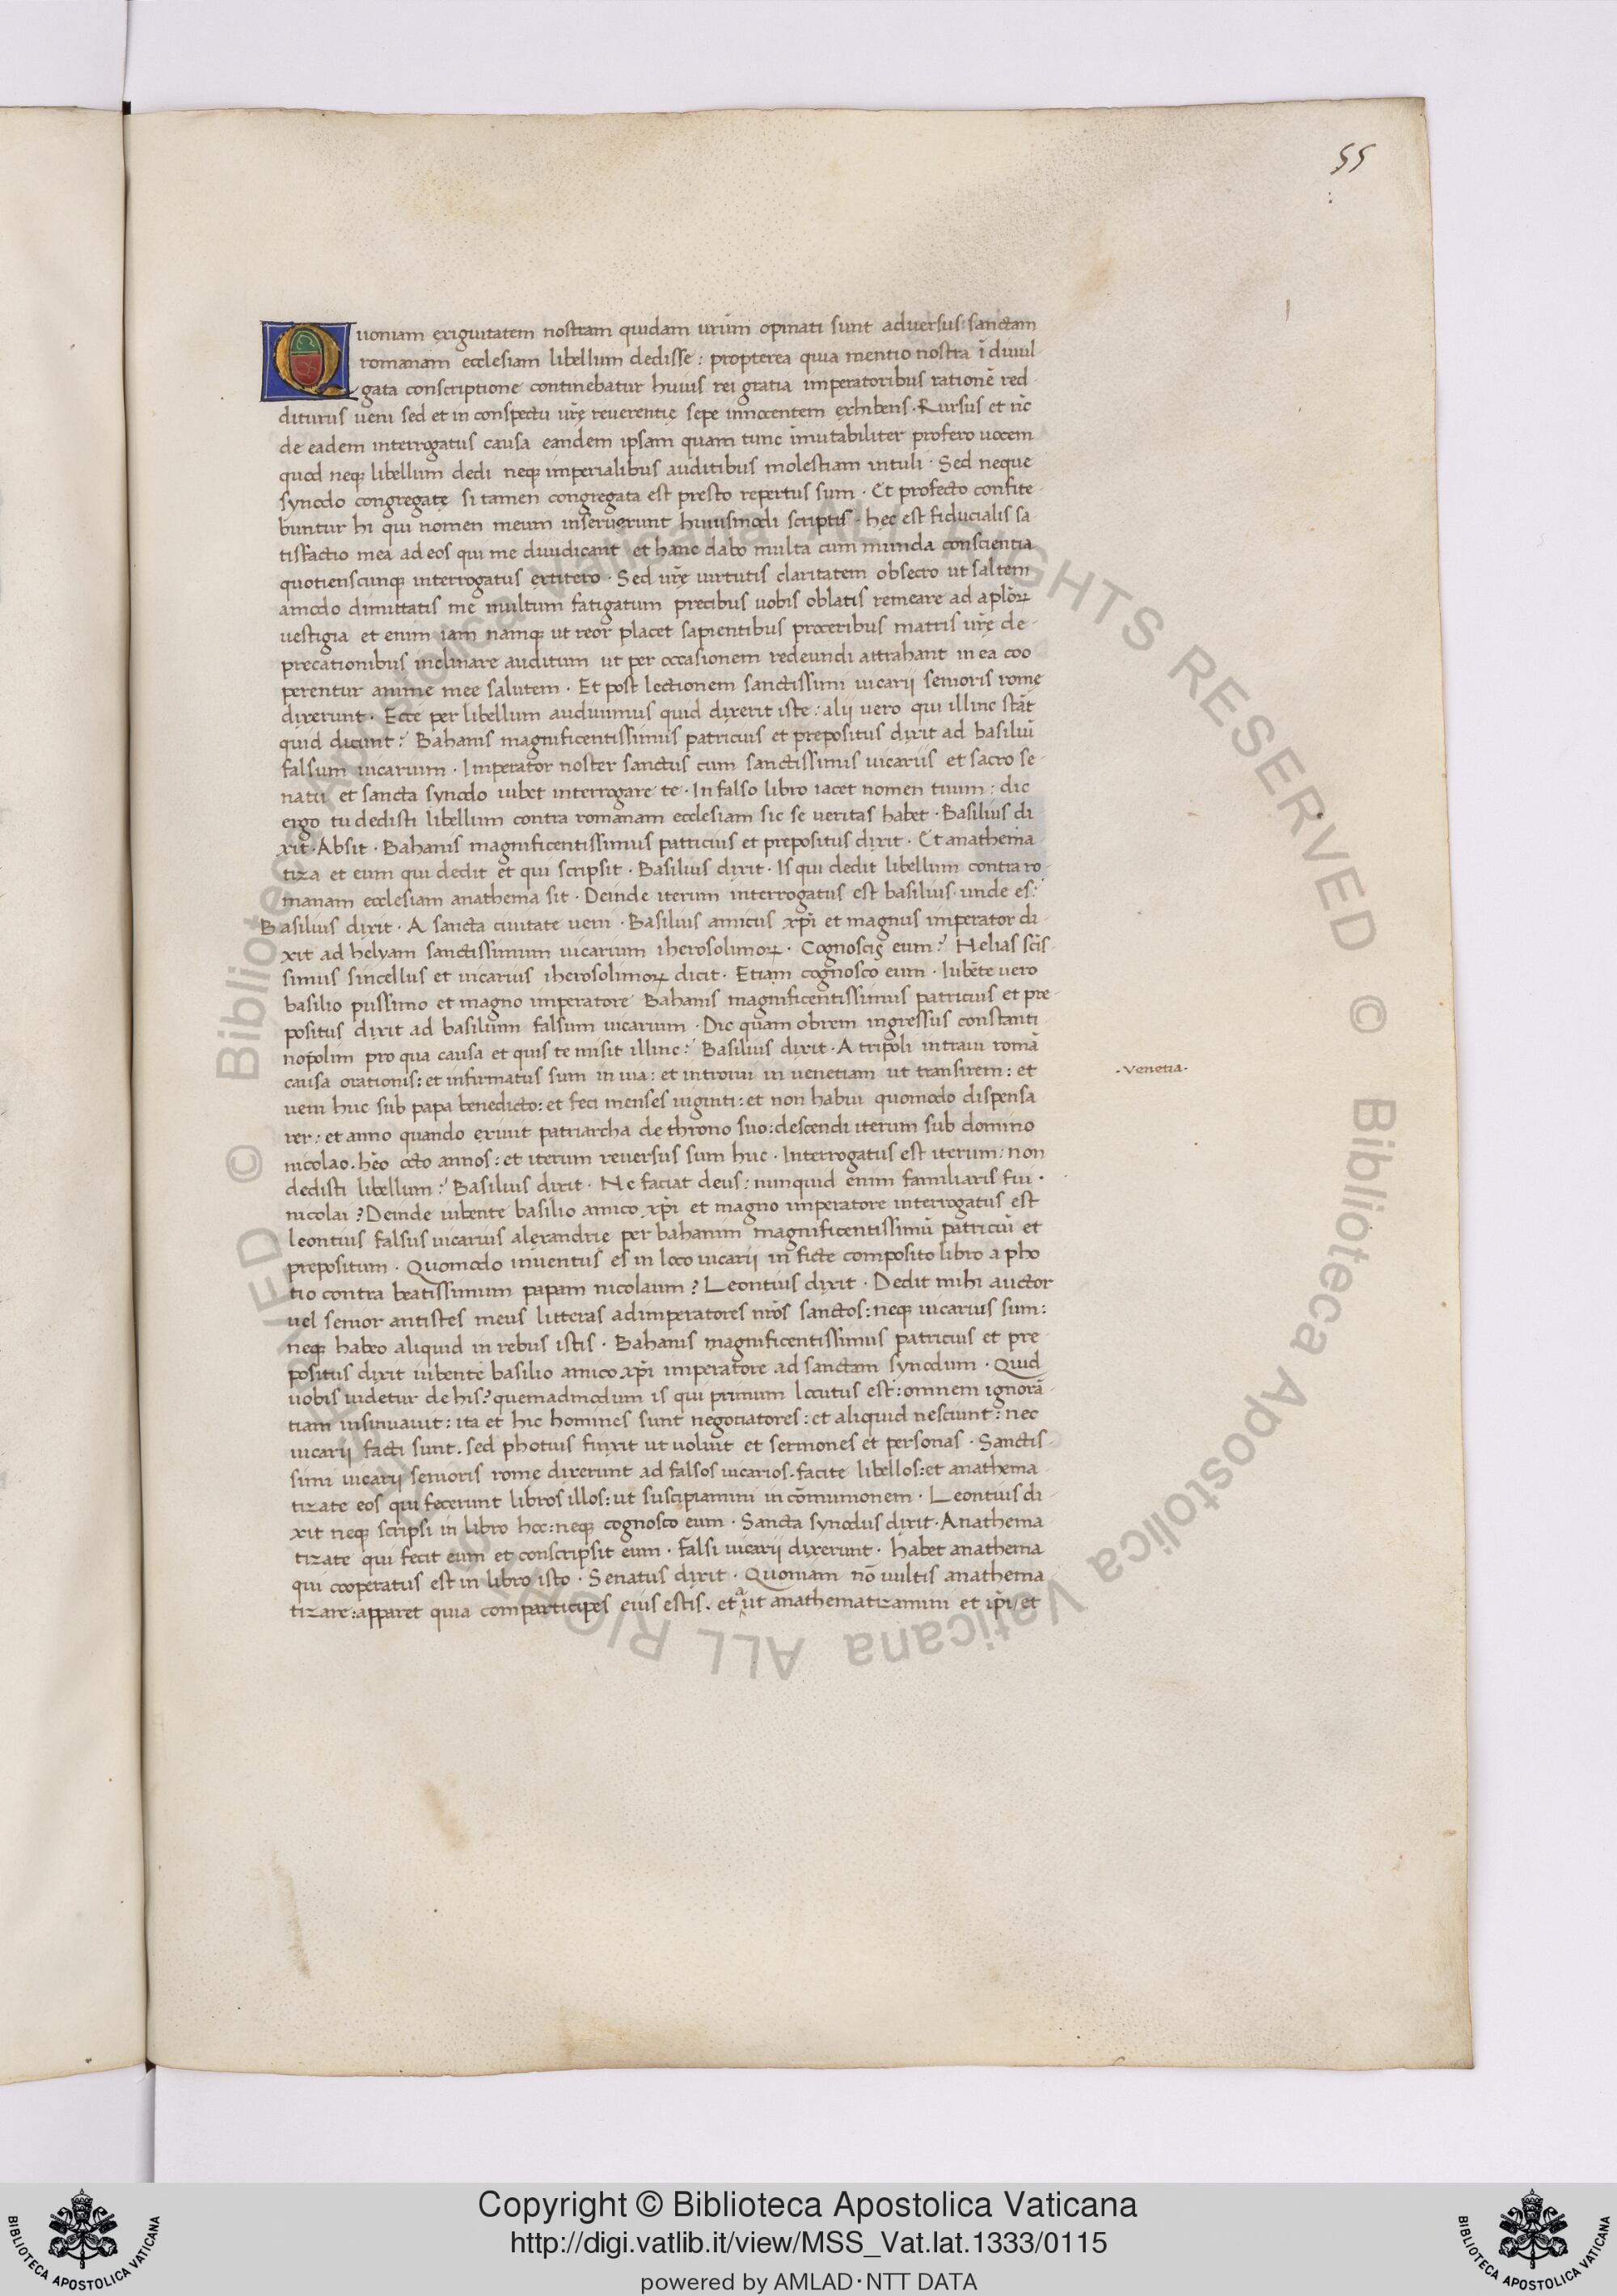 55
Quoniam exiguitatem nostram quidam ur̄um opinati sunt adversus sanctam
romanam ecclesiam libellum dedisse: propterea quia mentio nostra ī divul-
gata conscriptione continebatur huius rei gratia imperatoribus rationē red
diturus veni sed et in conspectu ur̄ę reverentię sepe innocentem exhibens. Rursus et nc̄
de eadem interrogatus causa eandem ipsam quam tunc īmutabiliter profero vocem
quod neq; libellum dedi neq; imperialibus auditibus molestiam intuli. Sed neque
synodo congregatę si tamen congregata est presto repertus sum. Et profecto confite
buntur hi qui nomen meum inseruerunt huiusmodi scriptis. hęc est fiducialis sa
tisfactio mea ad eos qui me diiudicant et hanc dabo multa cum munda conscientia
quotienscunq; interrogatus extitero. Sed ur̄ę virtutis claritatem obsecro ut saltem
amodo dimittatis me multum fatigatum precibus vobis oblatis remeare ad aplōꝝ
vestigia et enim iam namq; ut reor placet sapientibus proceribus matris ur̄ę de-
precationibus inclinare auditum ut per occasionem redeundi attrahant in ea coo
perentur anime mee salutem. Et post lectionem sanctissimi vicarii senioris romę
dixerunt. Ecce per libellum audivimus quid dixerit iste: alii vero qui illinc stāt
quid dicunt? Bahanis magnificentissimus patricius et prepositus dixit ad basiliū
falsum vicarium. Imperator noster sanctus cum sanctissimis vicariis et sacro se-
natu et sancta synodo iubet interrogare te. In falso libro iacet nomen tuum: dic
ergo tu dedisti libellum contra romanam ecclesiam sic se veritas habet. Basilius di
xit. Absit. Bahanis magnificentissimus patricius et prepositus dixit. Et anathema
tiza et eum qui dedit et qui scripsit. Basilius dixit. Is qui dedit libellum contra ro-
manam ecclesiam anathema sit. Deinde iterum interrogatus est basilius. unde es?
Basilius dixit. A sancta civitate veni. Basilius amicus xp̄i et magnus imperator di-
xit ad helyam sanctissimum vicarium iherosolimoꝝ. Cognoscis eum? Helias sc̄is-
simus sincellus et vicarius iherosolimoꝝ dicit. Etiam cognosco eum. Iubēte vero
basilio piissimo et magno imperatore Bahanis magnificentissimus patricius et pre-
positus dixit ad basilium falsum vicarium. Dic quam obrem ingressus constanti
nopolim pro qua causa et quis te misit illinc? Basilius dixit. A tripoli intravi romā
causa orationis: et infirmatus sum in via: et introivi in venetiam ut transirem: et
.venetia.
veni huc sub papa benedicto: et feci menses viginti: et non habui quomodo dispensa
rer: et anno quando exiuit patriarcha de throno suo: descendi iterum sub domino
nicolao. hēo octo annos: et iterum reversus sum huc. Interrogatus est iterum: non
dedisti libellum? Basilius dixit. Ne faciat deus: nunquid enim familiaris fui.
nicolai? Deinde iubente basilio amico xp̄i et magno imperatore interrogatus est
leontius falsus vicarius alexandrie per bahanim magnificentissimū patriciū et
prepositum. Quomodo inventus es in loco vicarii in ficte composito libro a pho
tio contra beatissimum papam nicolaum? Leontius dixit. Dedit mihi auctor
vel senior antistes meus litteras ad imperatores nrōs sanctos: neq; vicarius sum:
neq; habeo aliquid in rebus istis. Bahanis magnificentissimus patricius et pre
positus dixit iubente basilio amico xp̄i imperatore ad sanctam synodum. Quid
vobis videtur de his? quemadmodum is qui primum locutus est: omnem ignorā-
tiam insinuavit: ita et hic homines sunt negociatores: et aliquid nesciunt: nec
vicarii facti sunt. sed photius finxit ut voluit et sermones et personas. Sanctis-
simi vicarii senioris romę dixerunt ad falsos vicarios. facite libellos: et anathema
tizate eos qui fecerunt libros illos: ut suscipiamini in cōmunionem. Leontius di-
xit neq; scripsi in libro hoc: neq; cognosco eum. Sancta synodus dixit. Anathema-
tizate qui fecit eum et conscripsit eum. falsi vicarii dixerunt. habet anathema
qui cooperatus est in libro isto. Senatus dixit. Quoniam nō vultis anathema
tizare: apparet quia comparticipes eius estis. et ut anathematizamini et ip̄i / et
© Biblioteca Apostolica Vaticana ALL RIGHTS RESERVED © Biblioteca Apostolica Vaticana ALL RIGHTS RESERVED
BIBLIOTECA APOSTOLICA VATICANA
Copyright © Biblioteca Apostolica Vaticana
http://digi.vatlib.it/view/MSS_Vat.lat.1333/0115
powered by AMLAD·NTT DATA
BIBLIOTECA APOSTOLICA VATICANA